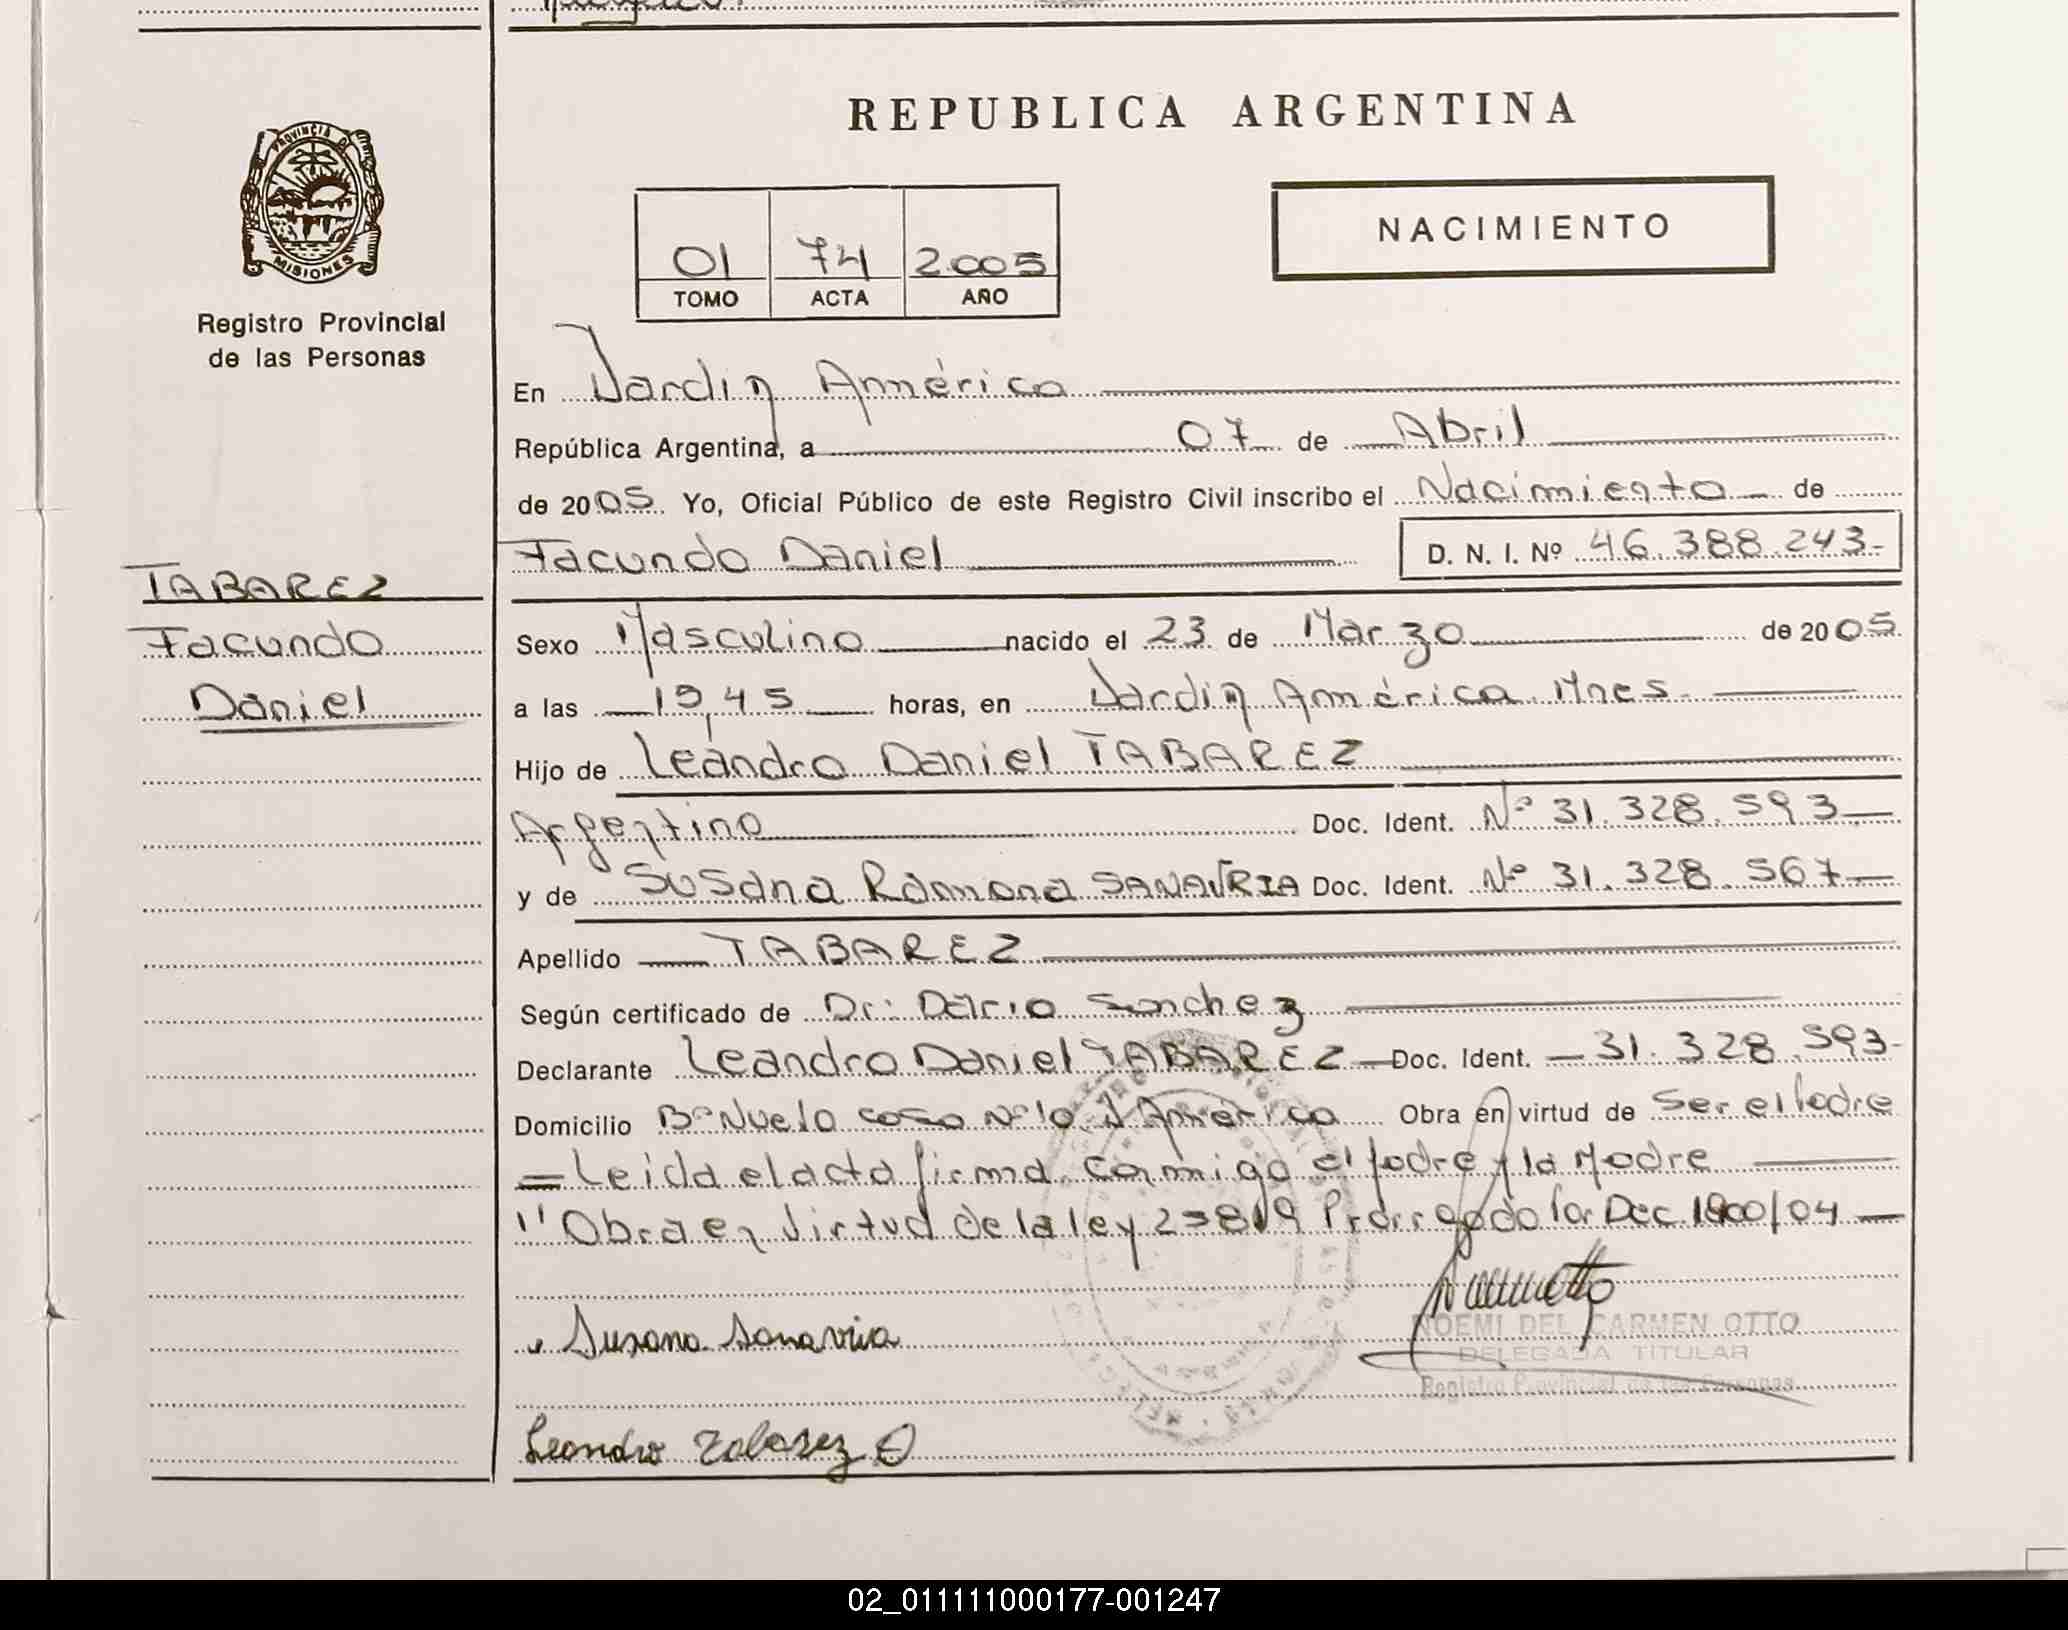 REPUBLICA ARGENTINA
PROVINCIA DE
MISIONES
Registro Provincial
de las Personas
01 74 2005
TOMO ACTA AÑO
NACIMIENTO
En Jardin América
República Argentina, a 07 de Abril
de 2005 Yo, Oficial Público de este Registro Civil inscribo el Nacimiento de
Facundo Daniel D. N. I. Nº 46.388.243-
TABAREZ
Facundo
Daniel
Sexo Masculino nacido el 23 de Marzo de 2005
a las 19,45 horas, en Jardin América Mnes
Hijo de Leandro Daniel TABAREZ
Argentino Doc. Ident. Nº 31.328.593
y de Susana Ramona SANAVRIA Doc. Ident. Nº 31.328.567
Apellido TABAREZ
Según certificado de Dr: Dario Sanchez
Declarante Leandro Daniel TABAREZ Doc. Ident. 31.328.593-
Domicilio Bº Nuevo casa Nº 10 J América Obra en virtud de Ser el Padre
= Leida el acta firma conmigo el Padre y la Madre
"Obra en Virtud de la ley 25819 Prorrogado Por Dec. 1800/04
Susana Sanavria
NOEMI DEL CARMEN OTTO
DELEGADA TITULAR
Registro Provincial de las Personas
Leandro Tabarez
02_011111000177-001247